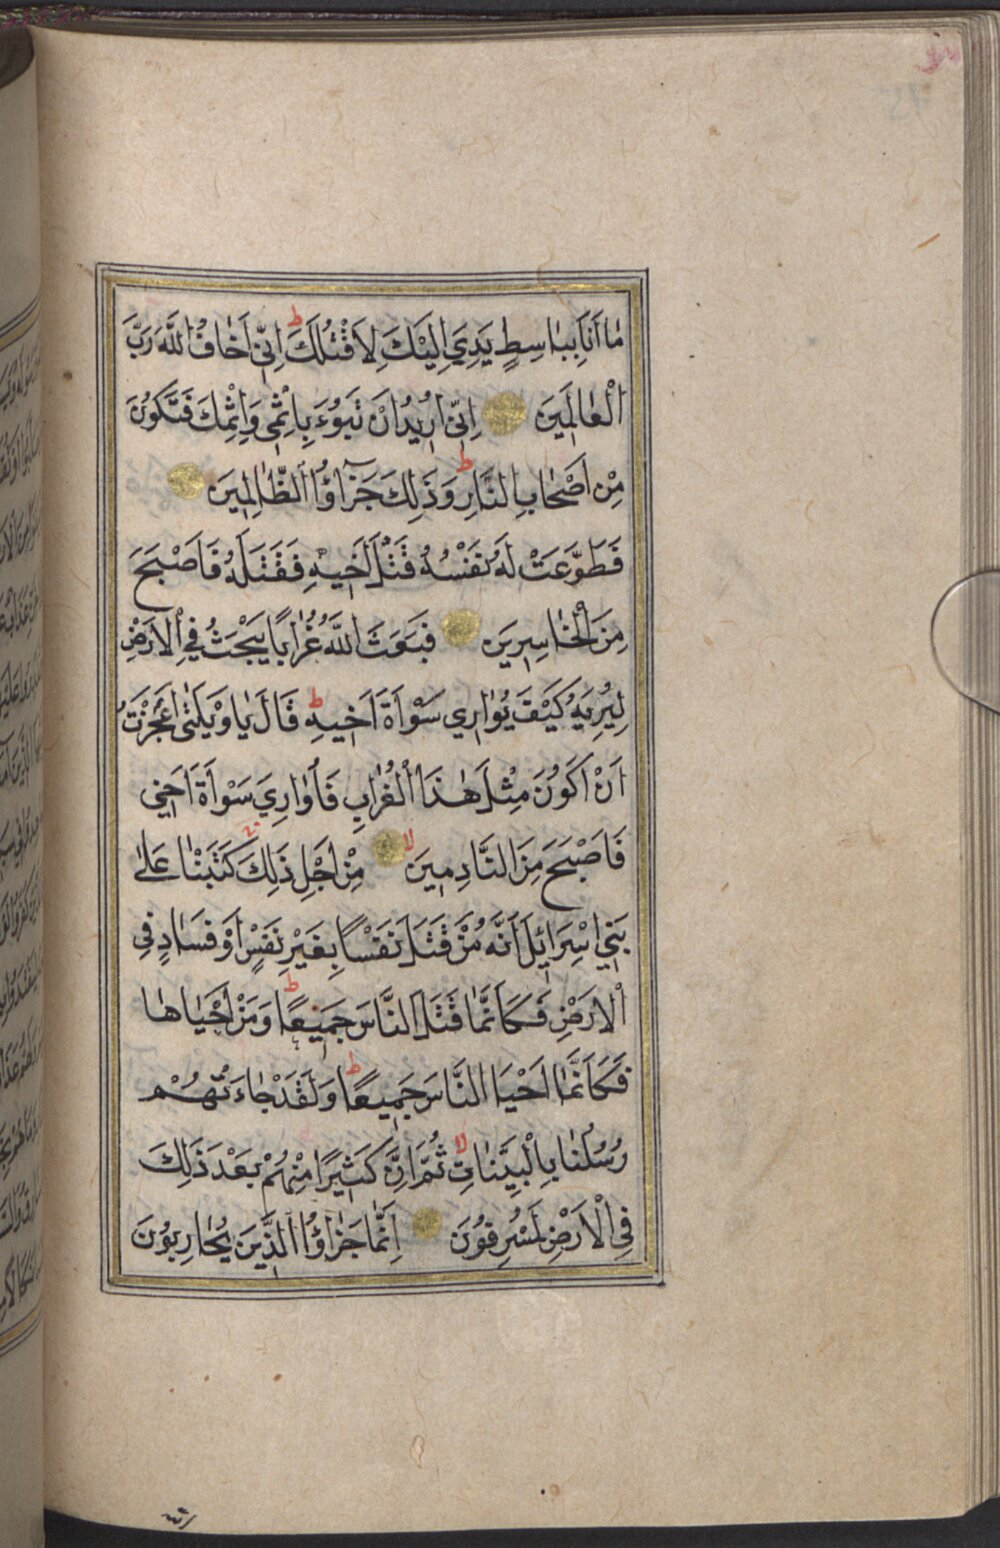 مٰا اَنَا بِبٰاسِطٍ يَدِيَ اِلَيْكَ لِاَقْتُلَكَ ط اِنّٖي اَخٰافُ اللّٰهَ رَبَّ
الْعٰالَمٖينَ اِنّٖي اُرٖيدُ اَنْ تَبُوءَ بِاِثْمٖي وَاِثْمِكَ فَتَكُونَ
مِنْ اَصْحٰابِ النّٰارِ ط وَذٰلِكَ جَزٰٓاؤُا الظّٰالِمٖينَ
فَطَوَّعَتْ لَهُ نَفْسُهُ قَتْلَ اَخٖيهِ فَقَتَلَهُ فَاَصْبَحَ
مِنَ الْخٰاسِرٖينَ فَبَعَثَ اللّٰهُ غُرٰاباً يَبْحَثُ فِي الْاَرْضِ
لِيُرِيَهُ كَيْفَ يُوٰارٖي سَوْاَةَ اَخٖيهِ ط قَالَ يٰا وَيْلَتٰى اَعَجَزْتُ
اَنْ اَكُونَ مِثْلَ هٰذَا الْغُرٰابِ فَاُوٰارِيَ سَوْاَةَ اَخٖي
فَاَصْبَحَ مِنَ النّٰادِمٖينَ لا مِنْ اَجْلِ ذٰلِكَ كَتَبْنٰا عَلٰى
بَنٖي اِسْرَائٖيلَ اَنَّهُ مَنْ قَتَلَ نَفْساً بِغَيْرِ نَفْسٍ اَوْ فَسٰادٍ فِي
الْاَرْضِ فَكَاَنَّمٰا قَتَلَ النّٰاسَ جَمٖيعاً ط وَمَنْ اَحْيٰاهٰا
فَكَاَنَّمٰا اَحْيَا النّٰاسَ جَمٖيعاً ط وَلَقَدْ جٰاءَتْهُمْ
رُسُلُنٰا بِالْبَيِّنٰاتِ لا ثُمَّ اِنَّ كَثٖيراً مِنْهُمْ بَعْدَ ذٰلِكَ
فِي الْاَرْضِ لَمُسْرِفُونَ اِنَّمٰا جَزٰاؤُا الَّذٖينَ يُحٰارِبُونَ